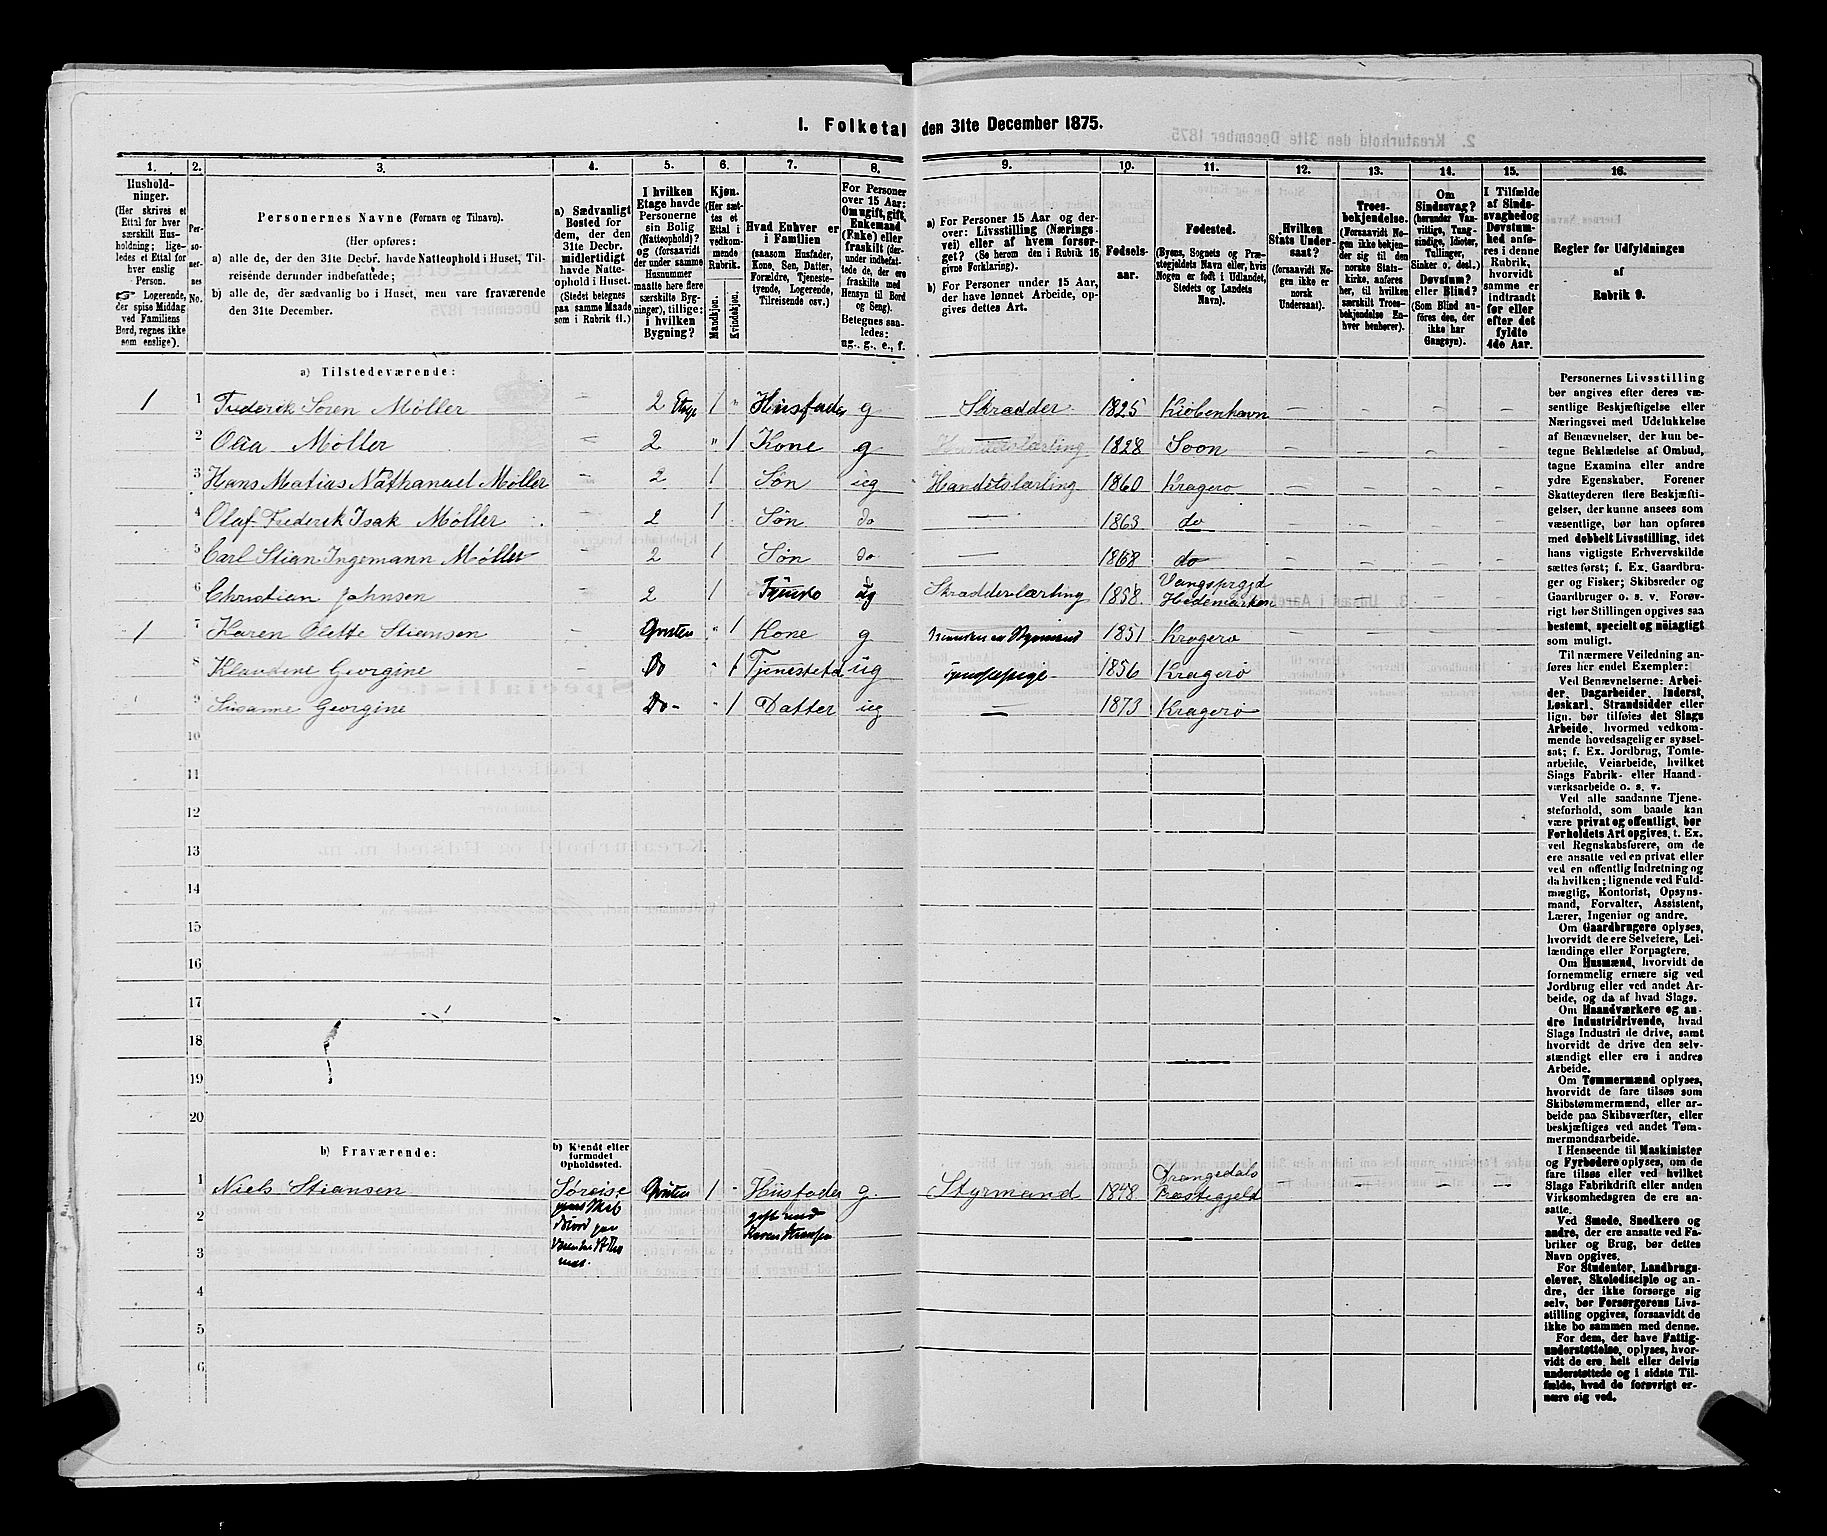 1. Folketal den 31te December 1875.
1. 2. 3. 4. 5. 6. 7. 8. 9. 10. 11. 12. 13. 14. 15. 16.
Husholdninger.
(Her skrives et
Ettal for hver
særskilt Husholdning;
ligeledes et Ettal for
hver enslig
Person.
☞ Logerende,
der spise Middag
ved Familiens
Bord, regnes ikke
som enslige).
Personernes No.
Personernes Navne (Fornavn og Tilnavn).
(Her opføres:
a) alle de, der den 31te Decbr. havde Natteophold i Huset, Tilreisende derunder indbefattede;
b) alle de, der sædvanlig bo i Huset, men vare fraværende
den 31te December.
a) Sædvanligt
Bosted for
dem, der den
31te Decbr.
midlertidigt
havde Natteophold i Huset.
(Stedet betegnes
paa samme Maade
som i Rubrik 11.)
I hvilken
Etage havde
Personerne
sin Bolig
(Natteophold)?
og (forsaavidt
der under samme
Husnummer
maatte høre flere
særskilte Bygninger), tillige:
i hvilken
Bygning?
Kjøn.
(Her sættes et
Ettal i
vedkommende
Rubrik.
Mandkjøn. Kvindekjøn.
Hvad Enhver er
i Familien
(saasom Husfader,
Kone, Søn, Datter,
Forældre, Tjenestetyende, Logerende,
Tilreisende osv.)
For Personer
over 15 Aar:
Om ugift, gift,
Enkemand
(Enke) eller
fraskilt (derunder indbefattede de, der ere
fraskilte med
Hensyn til Bord
og Seng).
Betegnes saaledes:
ug., g., e., f.
a) For Personer 15 Aar og derover: Livsstilling (Næringsvei) eller af hvem forsørget? (Se herom den i Rubrik 16
givne Forklaring).
b) For Personer under 15 Aar,
der have lønnet Arbeide, opgives dettes Art.
Fødselsaar.
Fødested.
(Byens, Sognets og Præstegjeldets Navn eller, hvis
Nogen er født i Udlandet,
Stedets og Landets
Navn).
Hvilken
Stats Undersaat?
(forsaavidt Nogen ikke er
norsk
Undersaat).
Troesbekjendelse.
(Forsaavidt Nogen ikke bekjender sig til den
norske Statskirke, anføres
her, til hvilken
særskilt Troesbekjendelse Enhver henhører).
Om
Sindssvag?
(herunder Vanvittige, Tungsindige, Idioter,
Tullinger,
Sinker o. desl.)
Døvstum?
eller Blind?
(Som Blind anføres den, der
ikke har
Gangsyn).
I Tilfælde
af Sindssvaghed og
Døvstumhed anføres i denne
Rubrik,
hvorvidt
samme er
indtraadt
før eller
efter det
fyldte
4de Aar.
Regler for Udfyldningen
af
Rubrik 9.
a) Tilstedeværende:
1 1 Frederik Søren Møller – 2 Etage 1 " Husfader g Skrædder 1825 Kiøbenhavn – – – –
2 Møller – 2 " 1 Kone g – 1828 Soon – – – –
3 Hans Matias Nathanael Møller – 2 1 Søn ug Handelslærling 1860 Kragerø – – – –
4 Olaf Frederik Isak Møller 2 1 Søn do – 1863 do – – – –
5 Carl Stian Ingemann Møller 2 1 Søn do – 1868 do – – – –
6 Christian Johnsen 2 1 ug Skrædderlærling 1858 Vangsprgjd
Hedemarken – – –
1 7 Karen Olette Stiansen – " 1 Kone g 1851 Kragerø – – – –
8 Klaudine Georgine – Do " 1 ug 1856 Kragerø – – – –
9 Susanne Georgine – Do – " 1 Datter ug – 1873 Kragerø – – – –
10
11
12
13
14
15
16
17
18
19
20
b) Fraværende:
b) Kjendt eller
formodet
Opholdssted.
1 Niels Stiansen 1 – Husfader g. Styrmand 1848 Drangedals
Præstegjeld – – – –
2 gift med
3 Karen Stiansen
4
5
6
Personernes Livsstilling
bør angives efter deres væsentlige Beskjæftigelse eller
Næringsvei med Udelukkelse
af Benævnelser, der kun betegne Beklædelse af Ombud,
tagne Examina eller andre
ydre Egenskaber. Forener
Skatteyderen flere Beskjæftigelser, der kunne ansees som
væsentlige, bør han opføres
med dobbelt Livsstilling, idet
hans vigtigste Erhvervskilde
sættes først; f. Ex. Gaardbruger og Fisker; Skibsreder og
Gaardbruger o. s. v. Forøvrigt bør Stillingen opgives saa
bestemt, specielt og nøiagtigt
som muligt.
Til nærmere Veiledning anføres her endel Exempler:
Ved Benævnelserne: Arbeider, Dagarbeider, Inderst,
Løskarl, Strandsidder eller
lign. bør tilføies det Slags
Arbeide, hvormed vedkommende hovedsagelig er sysselsat; f. Ex. Jordbrug, Tomtearbeide, Veiarbeide, hvilket
Slags Fabrik- eller Haandværksarbeide o. s. v.
Ved alle saadanne Tjenesteforhold, som baade kan
være privat og offentligt, bør
Forholdets Art opgives, t. Ex.
ved Regnskabsførere, om de
ere ansatte ved en privat eller
ved en offentlig Indretning og
da hvilken; lignende ved Fuldmægtig, Kontorist, Opsynsmand, Forvalter, Assistent,
Lærer, Ingeniør og andre.
Om Gaardbrugere oplyses,
hvorvidt de ere Selveiere, Leilændinge eller Forpagtere.
Om Husmænd, hvorvidt de
fornemmelig ernære sig ved
Jordbrug eller ved andet Arbeide, og da af hvad Slags.
Om Haandværkere og andre Industridrivende, hvad
Slags Industri de drive, samt
hvorvidt de drive den selvstændigt eller ere i andres
Arbeide.
Om Tømmermænd oplyses,
hvorvidt de fare tilsøs som
Skibstømmermænd, eller arbeide paa Skibsværfter, eller
beskjæftiges ved andet Tømmermandsarbeide.
I Henseende til Maskinister
og Fyrbødere oplyses, om de
fare tilsøs eller ved hvilket
Slags Fabrikdrift eller anden
Virksomhedsgren de ere ansatte.
Ved Smede, Snedkere og
andre, der ere ansatte ved Fabriker og Brug, bør dettes
Navn opgives.
For Studenter, Landbrugselever, Skoledisciple og andre, der ikke forsørge sig
selv, bør Forsørgerens Livsstilling opgives, forsaavidt de
ikke bo sammen med denne.
For dem, der have Fattigunderstøttelse, oplyses, hvorvidt de ere helt eller delvis
understøttede og i sidste Tilfælde, hvad de forøvrigt ernære sig ved.